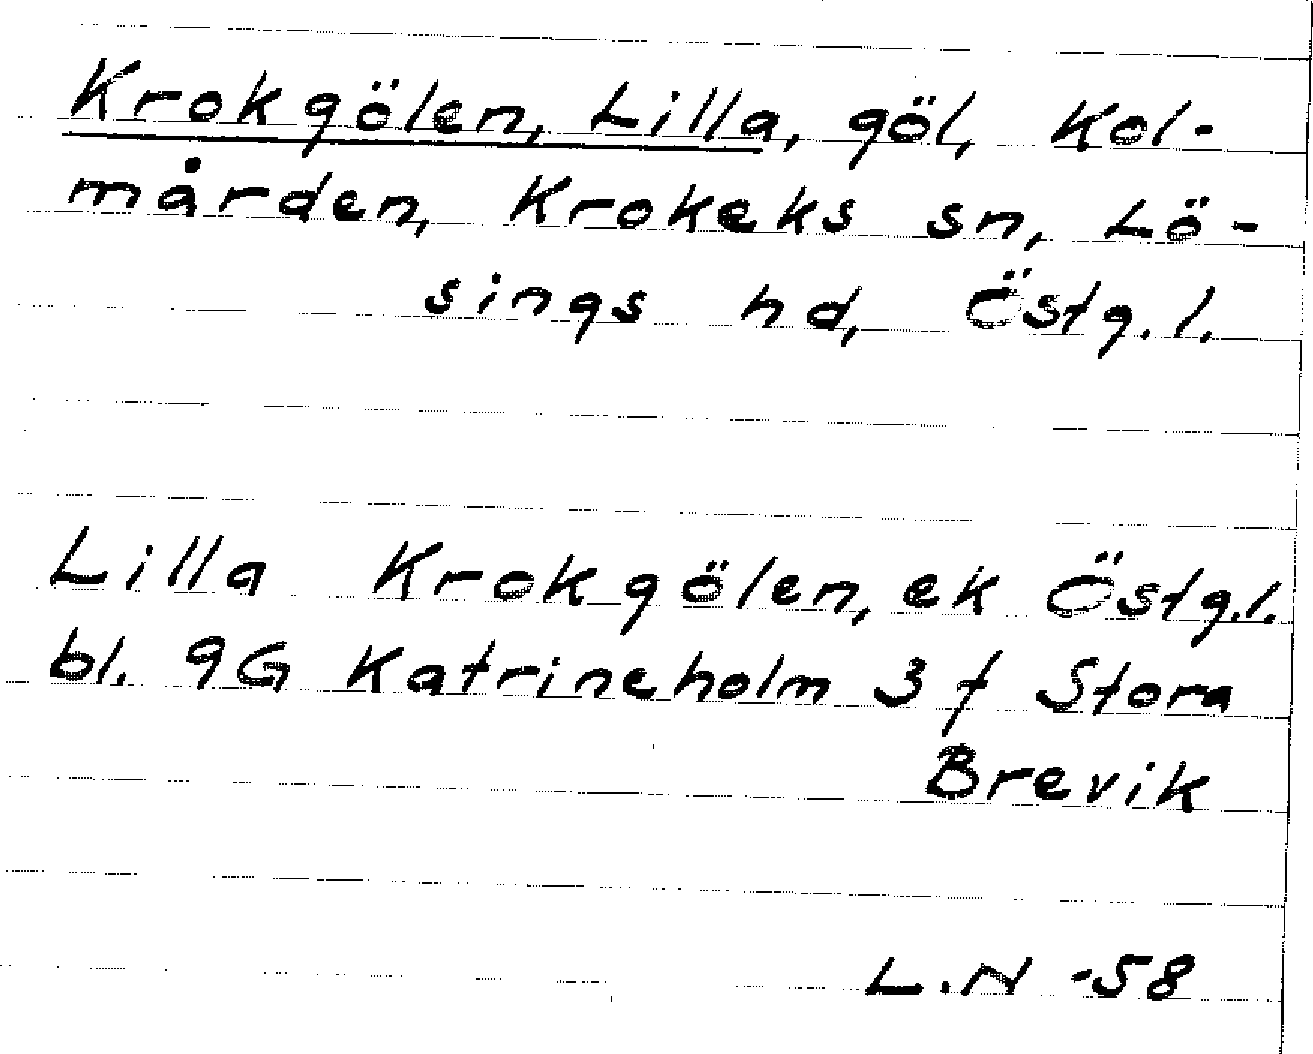 Krokgölen, Lilla, göl, Kol-
mården, Krokeks sn, Lö-
sings hd, Östg. l.
Lilla Krokgölen, ek Östg.l.
bl. 9G Katrineholm 3 f Stora
Brevik
L.N -58